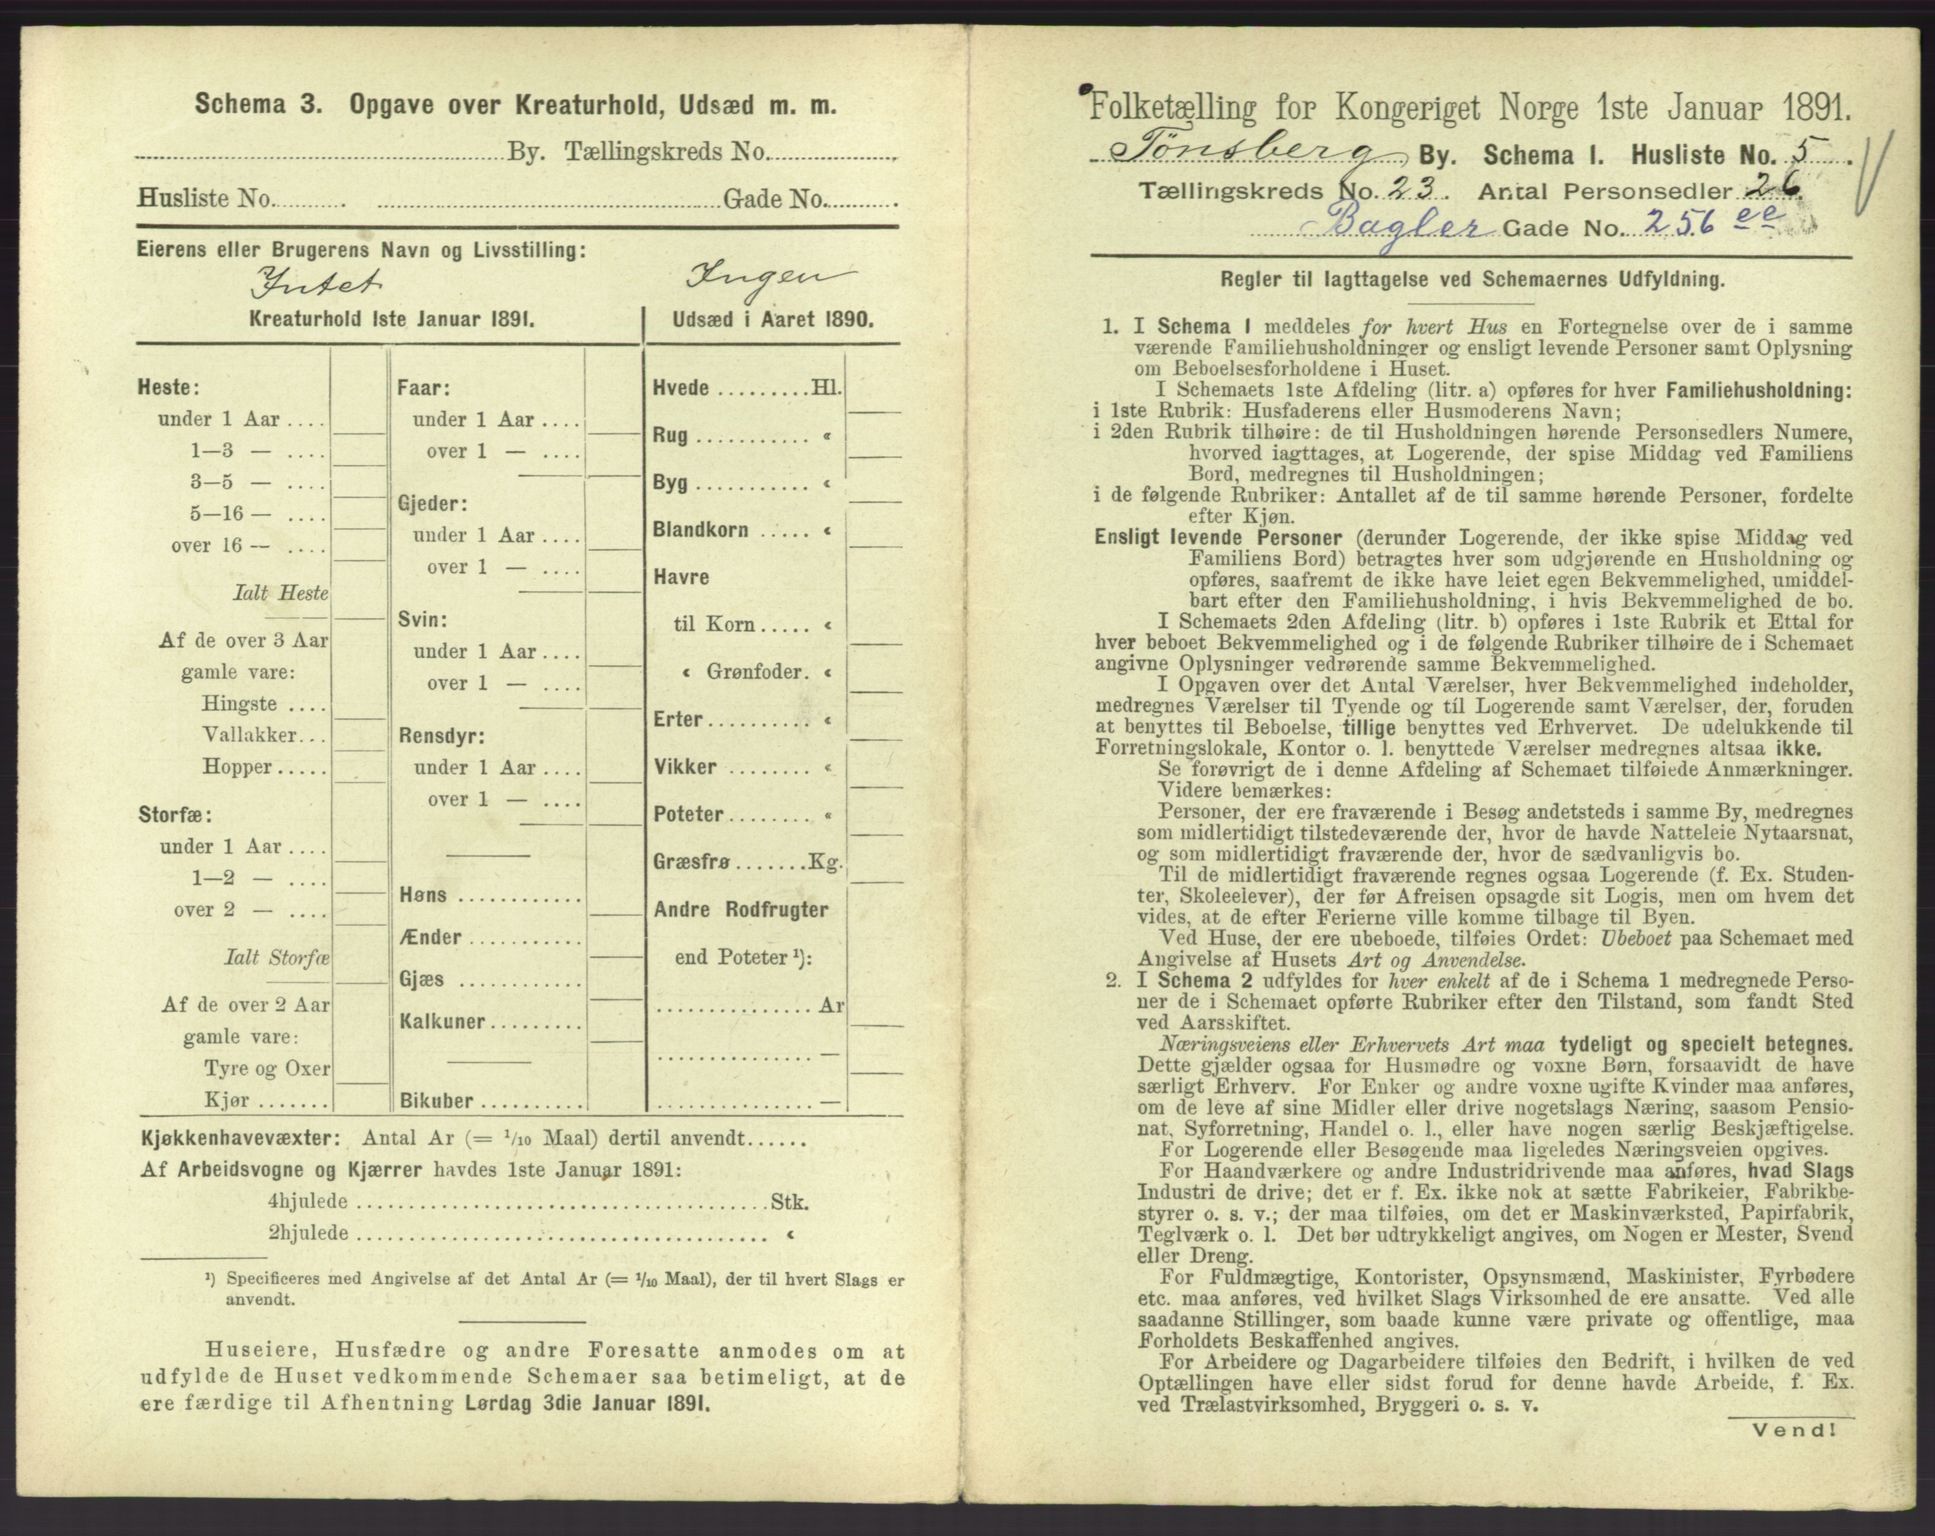 Schema 3. Opgave over Kreaturhold, Udsæd m. m.
By. Tællingskreds No.
Husliste No. Gade No.
Eierens eller Brugerens Navn og Livsstilling:
Intet Ingen
Kreaturhold 1ste Januar 1891. Udsæd i Aaret 1890.
Heste:
under 1 Aar
1—3 —
3—5 —
5—16 —
over 16 —
Ialt Heste
Af de over 3 Aar
gamle vare:
Hingste
Vallakker
Hopper
Storfæ:
under 1 Aar
1—2 —
over 2 —
Ialt Storfæ
Af de over 2 Aar
gamle vare:
Tyre og Oxer
Kjør
Faar:
under 1 Aar
over 1 —
Gjeder:
under 1 Aar
over 1 —
Svin:
under 1 Aar
over 1 —
Rensdyr:
under 1 Aar
over 1 —
Høns
Ænder
Gjæs
Kalkuner
Bikuber
Hvede Hl.
Rug «
Byg «
Blandkorn «
Havre
til Korn «
« Grønfoder. «
Erter «
Vikker «
Poteter «
Græsfrø Kg.
Andre Rodfrugter
end Poteter ¹):
Ar
—
—
Kjøkkenhavevæxter: Antal Ar (= 1/10 Maal) dertil anvendt
Af Arbeidsvogne og Kjærrer havdes 1ste Januar 1891:
4hjulede Stk.
2hjulede «
¹) Specificeres med Angivelse af det Antal Ar (= 1/10 Maal), der til hvert Slags er
anvendt.
Huseiere, Husfædre og andre Foresatte anmodes om at
udfylde de Huset vedkommende Schemaer saa betimeligt, at de
ere færdige til Afhentning Lørdag 3die Januar 1891.
Folketælling for Kongeriget Norge 1ste Januar 1891.
Tønsberg By. Schema 1. Husliste No. 5
Tællingskreds No. 23. Antal Personsedler 26.
Bagler Gade No. 256 ee
Regler til Iagttagelse ved Schemaernes Udfyldning.
1. I Schema 1 meddeles for hvert Hus en Fortegnelse over de i samme
værende Familiehusholdninger og ensligt levende Personer samt Oplysning
om Beboelsesforholdene i Huset.
I Schemaets 1ste Afdeling (litr. a) opføres for hver Familiehusholdning:
i 1ste Rubrik: Husfaderens eller Husmoderens Navn;
i 2den Rubrik tilhøire: de til Husholdningen hørende Personsedlers Numere,
hvorved iagttages, at Logerende, der spise Middag ved Familiens
Bord, medregnes til Husholdningen;
i de følgende Rubriker: Antallet af de til samme hørende Personer, fordelte
efter Kjøn.
Ensligt levende Personer (derunder Logerende, der ikke spise Middag ved
Familiens Bord) betragtes hver som udgjørende en Husholdning og
opføres, saafremt de ikke have leiet egen Bekvemmelighed, umiddel-
bart efter den Familiehusholdning, i hvis Bekvemmelighed de bo.
I Schemaets 2den Afdeling (litr. b) opføres i 1ste Rubrik et Ettal for
hver beboet Bekvemmelighed og i de følgende Rubriker tilhøire de i Schemaet
angivne Oplysninger vedrørende samme Bekvemmelighed.
I Opgaven over det Antal Værelser, hver Bekvemmelighed indeholder,
medregnes Værelser til Tyende og til Logerende samt Værelser, der, foruden
at benyttes til Beboelse, tillige benyttes ved Erhvervet. De udelukkende til
Forretningslokale, Kontor o. l. benyttede Værelser medregnes altsaa ikke.
Se forøvrigt de i denne Afdeling af Schemaet tilføiede Anmærkninger.
Videre bemærkes:
Personer, der ere fraværende i Besøg andetsteds i samme By, medregnes
som midlertidigt tilstedeværende der, hvor de havde Natteleie Nytaarsnat,
og som midlertidigt fraværende der, hvor de sædvanligvis bo.
Til de midlertidigt fraværende regnes ogsaa Logerende (f. Ex. Studen-
ter, Skoleelever), der før Afreisen opsagde sit Logis, men om hvem det
vides, at de efter Ferierne ville komme tilbage til Byen.
Ved Huse, der ere ubeboede, tilføies Ordet: Ubeboet paa Schemaet med
Angivelse af Husets Art og Anvendelse.
2. I Schema 2 udfyldes for hver enkelt af de i Schema 1 medregnede Perso-
ner de i Schemaet opførte Rubriker efter den Tilstand, som fandt Sted
ved Aarsskiftet.
Næringsveiens eller Erhvervets Art maa tydeligt og specielt betegnes.
Dette gjælder ogsaa for Husmødre og voxne Børn, forsaavidt de have
særligt Erhverv. For Enker og andre voxne ugifte Kvinder maa anføres,
om de leve af sine Midler eller drive nogetslags Næring, saasom Pensio-
nat, Syforretning, Handel o. l., eller have nogen særlig Beskjæftigelse.
For Logerende eller Besøgende maa ligeledes Næringsveien opgives.
For Haandværkere og andre Industridrivende maa anføres, hvad Slags
Industri de drive; det er f. Ex. ikke nok at sætte Fabrikeier, Fabrikbe-
styrer o. s. v.; der maa tilføies, om det er Maskinværksted, Papirfabrik,
Teglværk o. l. Det bør udtrykkeligt angives, om Nogen er Mester, Svend
eller Dreng.
For Fuldmægtige, Kontorister, Opsynsmænd, Maskinister, Fyrbødere
etc. maa anføres, ved hvilket Slags Virksomhed de ere ansatte. Ved alle
saadanne Stillinger, som baade kunne være private og offentlige, maa
Forholdets Beskaffenhed angives.
For Arbeidere og Dagarbeidere tilføies den Bedrift, i hvilken de ved
Optællingen have eller sidst forud for denne havde Arbeide, f. Ex.
ved Trælastvirksomhed, Bryggeri o. s. v.
Vend!